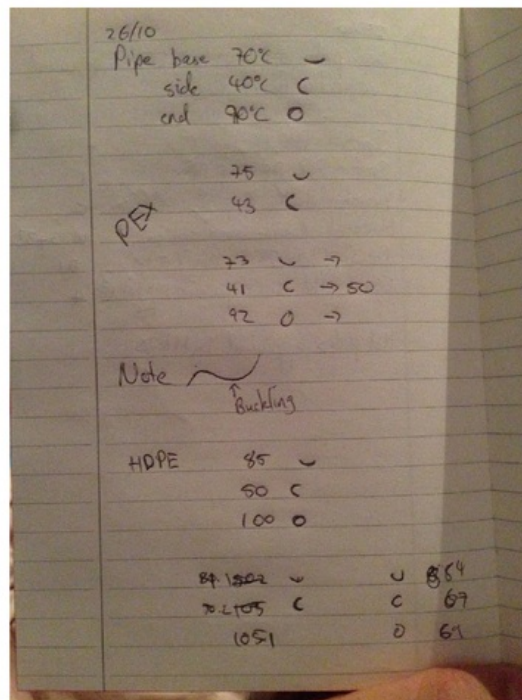 26/10
Pipe base 70°C ⌣
side 40°C C
end 90°C O
75 ⌣
43 C
PEX
73 ⌣ →
41 C → 50
92 O →
Note
↑
Buckling
HDPE 85 ⌣
50 C
100 O
⌣ ⌣ 84
C C 67
1051 O